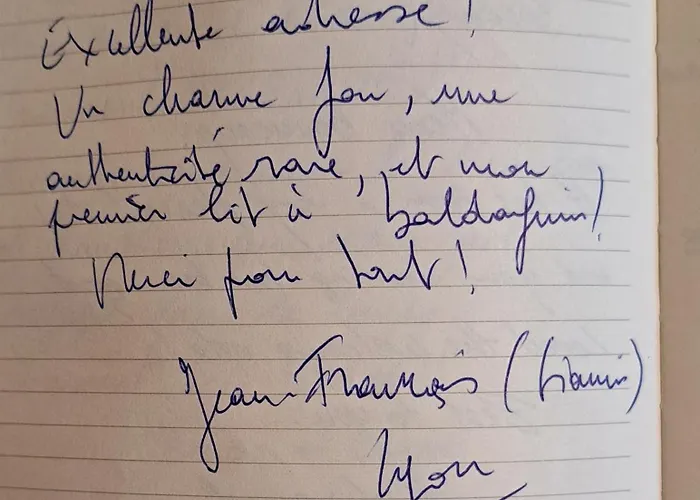 Excellente adresse !
Un charme fou, une
authenticité rare, et mon
premier lit à baldaquin !
Merci pour tout !
Jean-François
Lyon